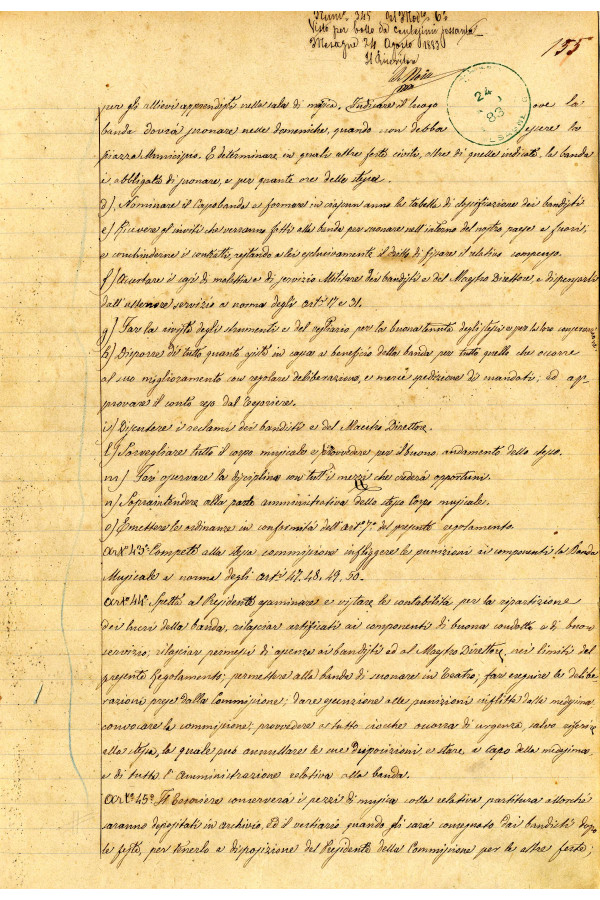 Num. 345 del Mod. 6°
Visto per bollo da centesimi sessanta
Mesagne 24 Agosto 1883
Il Ricevitore
155
24
83
per gli allievi apprendisti nella sala di musica. Indicare il luogo ove la
banda dovrà suonare nelle domeniche, quando non debba essere la
piazza Municipio. E determinare in quali altre feste civili, oltre di quelle indicate, la banda
è obbligata di suonare, e per quante ore della stessa.
d) Nominare il Capobanda e formare in ciascun anno la tabella di classificazione dei bandisti
e) Ricevere gl'inviti che verranno fatti alla banda per suonare nell'interno del nostro paese e fuori;
e conchiuderne i contratti, restando a lei esclusivamente il dritto di fissare il relativo compenso.
f) Accertare i casi di malattia o di servizio Militare dei bandisti e del Maestro Direttore, e dispensarli
dall'ulteriore servizio a norma degli Art.i 17 e 31.
g) Far la visita degli strumenti e del vestiario per la buona tenuta degli stessi e per la loro conservazione
h) Disporre di tutto quanto esiste in cassa a beneficio della banda per tutto quello che occorre
al suo miglioramento con regolare deliberazione, e mercè spedizione di mandati; ed ap
provare il conto reso dal Tesoriere.
i) Discutere i reclami dei bandisti e del Maestro Direttore.
l) Sorvegliare tutto il corpo musicale e provvedere per il buono andamento dello stesso.
m) Fari osservare la disciplina con tutt'i mezzi che crederà opportuni.
n) Sopraintendere alla parte amministrativa dello stesso Corpo musicale.
o) Emettere le ordinanze in conformità dell'Art.° 7° del presente regolamento.
Art.° 43° Compete alla stessa commissione infliggere le punizioni ai componenti la Banda
Musicale a norma degli Art.i 47. 48. 49. 50.
Art.° 44° Spetta al Presidente esaminare e vistare la contabilità per la ripartizione
dei lucri della banda, rilasciar certificati ai componenti di buona condotta e di buon
servizio; rilasciar permessi di assenze ai bandisti ed al Maestro Direttore, nei limiti del
presente Regolamento; permettere alla banda di suonare in Teatro; far eseguire le delibe
razioni prese dalla Commissione; dare esecuzione alle punizioni inflitte dalla medesima
convocare la commissione; provvedere a tutto ciocchè occorra di urgenza, salvo riferire
alla stessa, la quale può annullare le sue disposizioni, e stare a capo della medesima,
e di tutta l'Amministrazione relativa alla banda.
Art.° 45° Il Tesoriere conserverà i pezzi di musica colla relativa partitura allorchè
saranno depositati in archivio, ed il vestiario quando gli sarà consegnato dai bandisti dopo
le feste, per tenerlo a disposizione del Presidente della Commissione per le altre feste;